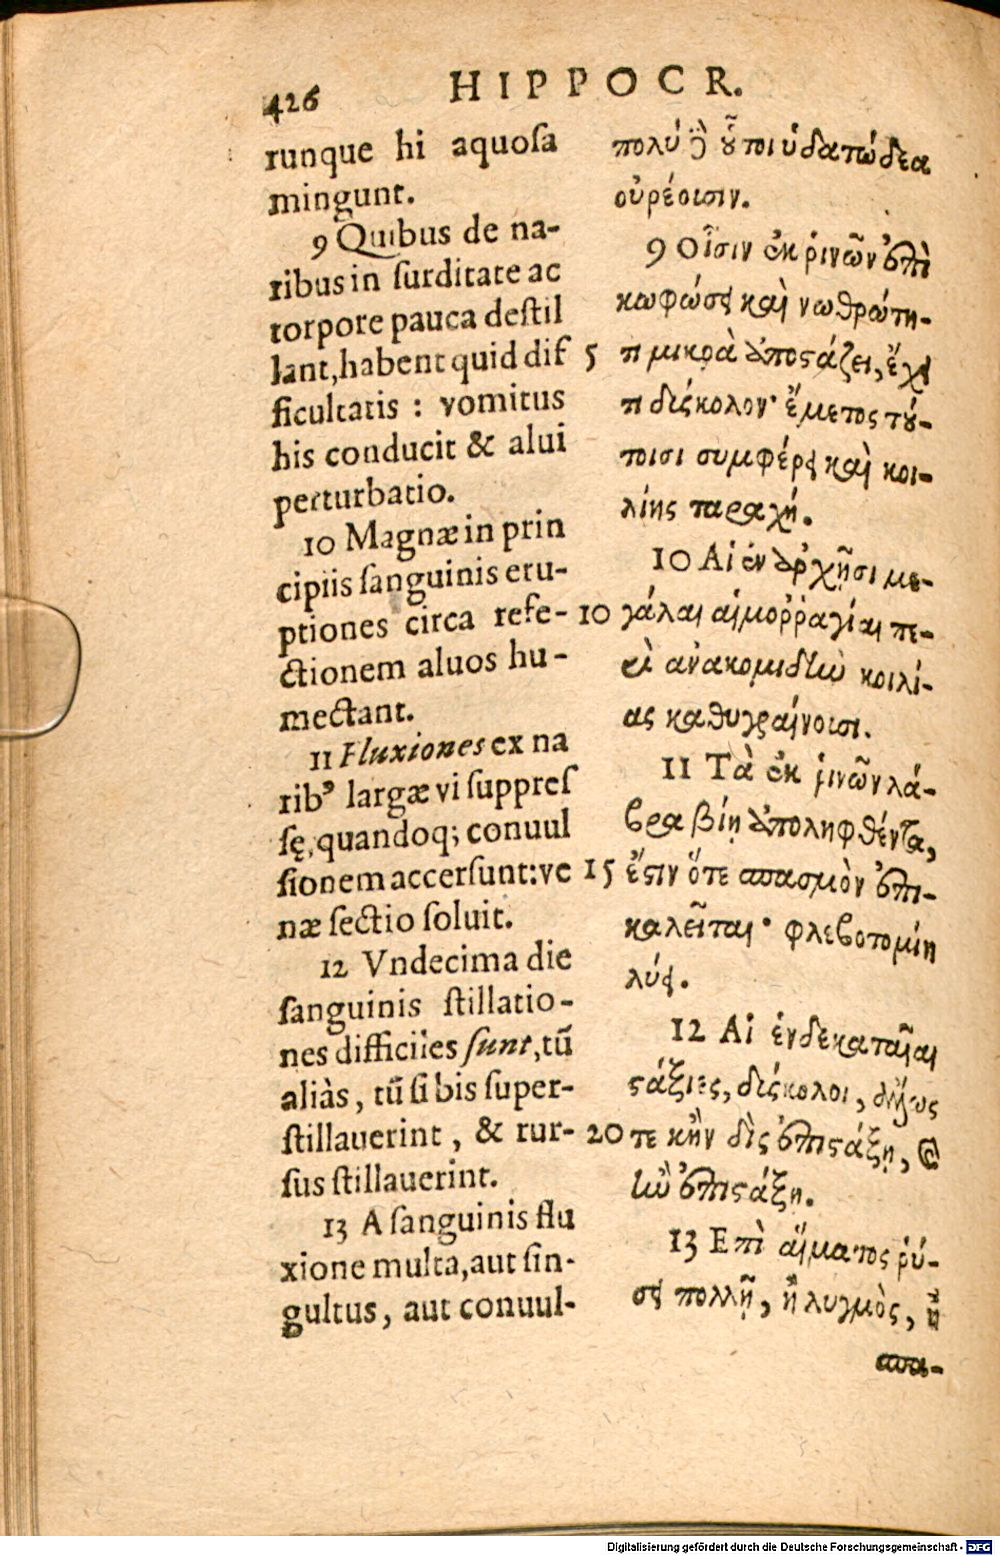 426
HIPPOCR.
runque hi aquoſa
mingunt.
9 Quibus de na-
ribus in ſurditate ac
torpore pauca deſtil
lant, habent quid dif
ficultatis : vomitus
his conducit & alui
perturbatio.
10 Magnæ in prin
cipiis ſanguinis eru-
ptiones circa refe-
ctionem aluos hu-
mectant.
11 Fluxiones ex na
ribꝰ largæ vi ſuppreſ
ſę, quandoq; conuul
ſionem accerſunt: ve
næ ſectio ſoluit.
12 Vndecima die
ſanguinis ſtillatio-
nes difficiles ſunt, tū
aliàs, tū ſi bis ſuper-
ſtillauerint, & rur-
ſus ſtillauerint.
13 A ſanguinis flu
xione multa, aut ſin-
gultus, aut conuul-
πολύ δὲ οὗτοι ὑδατώδεα
οὐρέουσιν.
9 Οἷσιν ἐκ ῥινῶν ἐπὶ
κωφώσει καὶ νωθρότη-
5 τι μικρὰ ἀποστάζει, ἔχει
τι δύσκολον· ἔμετος τού-
τοισι συμφέρει καὶ κοι-
λίης ταραχή.
10 Αἱ ἐν ἀρχῇσι με-
10 γάλαι αἱμορραγίαι πε-
ρὶ ἀνακομιδὴν κοιλί-
ας καθυγραίνουσι.
11 Τὰ ἐκ ῥινῶν λά-
βρα βίῃ ἀποληφθέντα,
15 ἔστιν ὅτε σπασμὸν ἐπι-
καλεῖται· φλεβοτομίη
λύει.
12 Αἱ ἑνδεκαταῖαι
στάξιες, δύσκολοι, ἄλλως
20 τε κἢν δὶς ἐπιστάξῃ, καὶ
ἢν ἐπιστάξῃ.
13 Επὶ αἵματος ῥύ-
σει πολλῇ, ἢ λυγμὸς, ἢ
σπα-
Digitalisierung gefördert durch die Deutsche Forschungsgemeinschaft - DFG